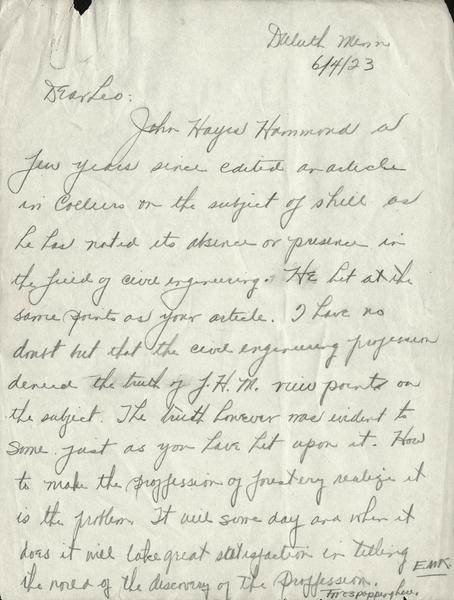 Duluth Minn
6/4/23
Dear Leo:
John Hayes Hammond a
few years since edited an article
in Colliers on the subject of skill as
he has noted its absence or presence in
the field of civil engineering. He hit at the
same points as your article. I have no
doubt but that the civil engineering profession
denied the truth of J.H.M. view points on
the subject. The truth however was evident to
some just as you have hit upon it. How
to make the proffession of forestery realize it
is the problem. It will some day and when it
does it will take great satisfaction in telling
the world of the discovery of the Proffession.